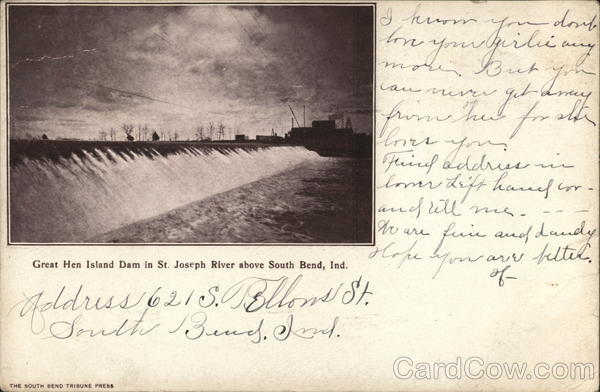 I know you don't
love your girlie any
more. But you
can never get away
from her for she
loves you.
Find address in
lower left hand cor-
and tell me. - - -
We are fine and dandy
Hope you are better.
Great Hen Island Dam in St. Joseph River above South Bend, Ind.
Address 621 S. St.
South Bend, Ind.
THE SOUTH BEND TRIBUNE PRESS
CardCow.com